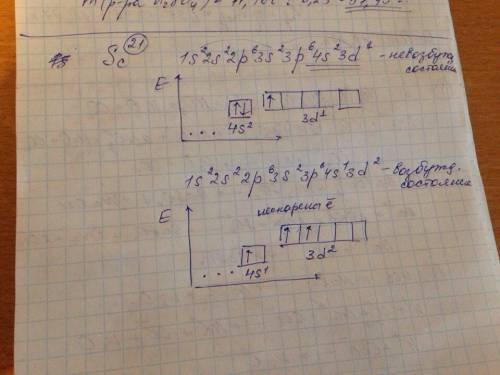 Sc 21 1s²2s²2p⁶3s²3p⁶4s²3d¹ - невозбужд.
состояние
E
4s²
3d¹
1s²2s²2p⁶3s²3p⁶4s¹3d² - возбужд.
состояние
E
неспарены ē
3d²
4s¹